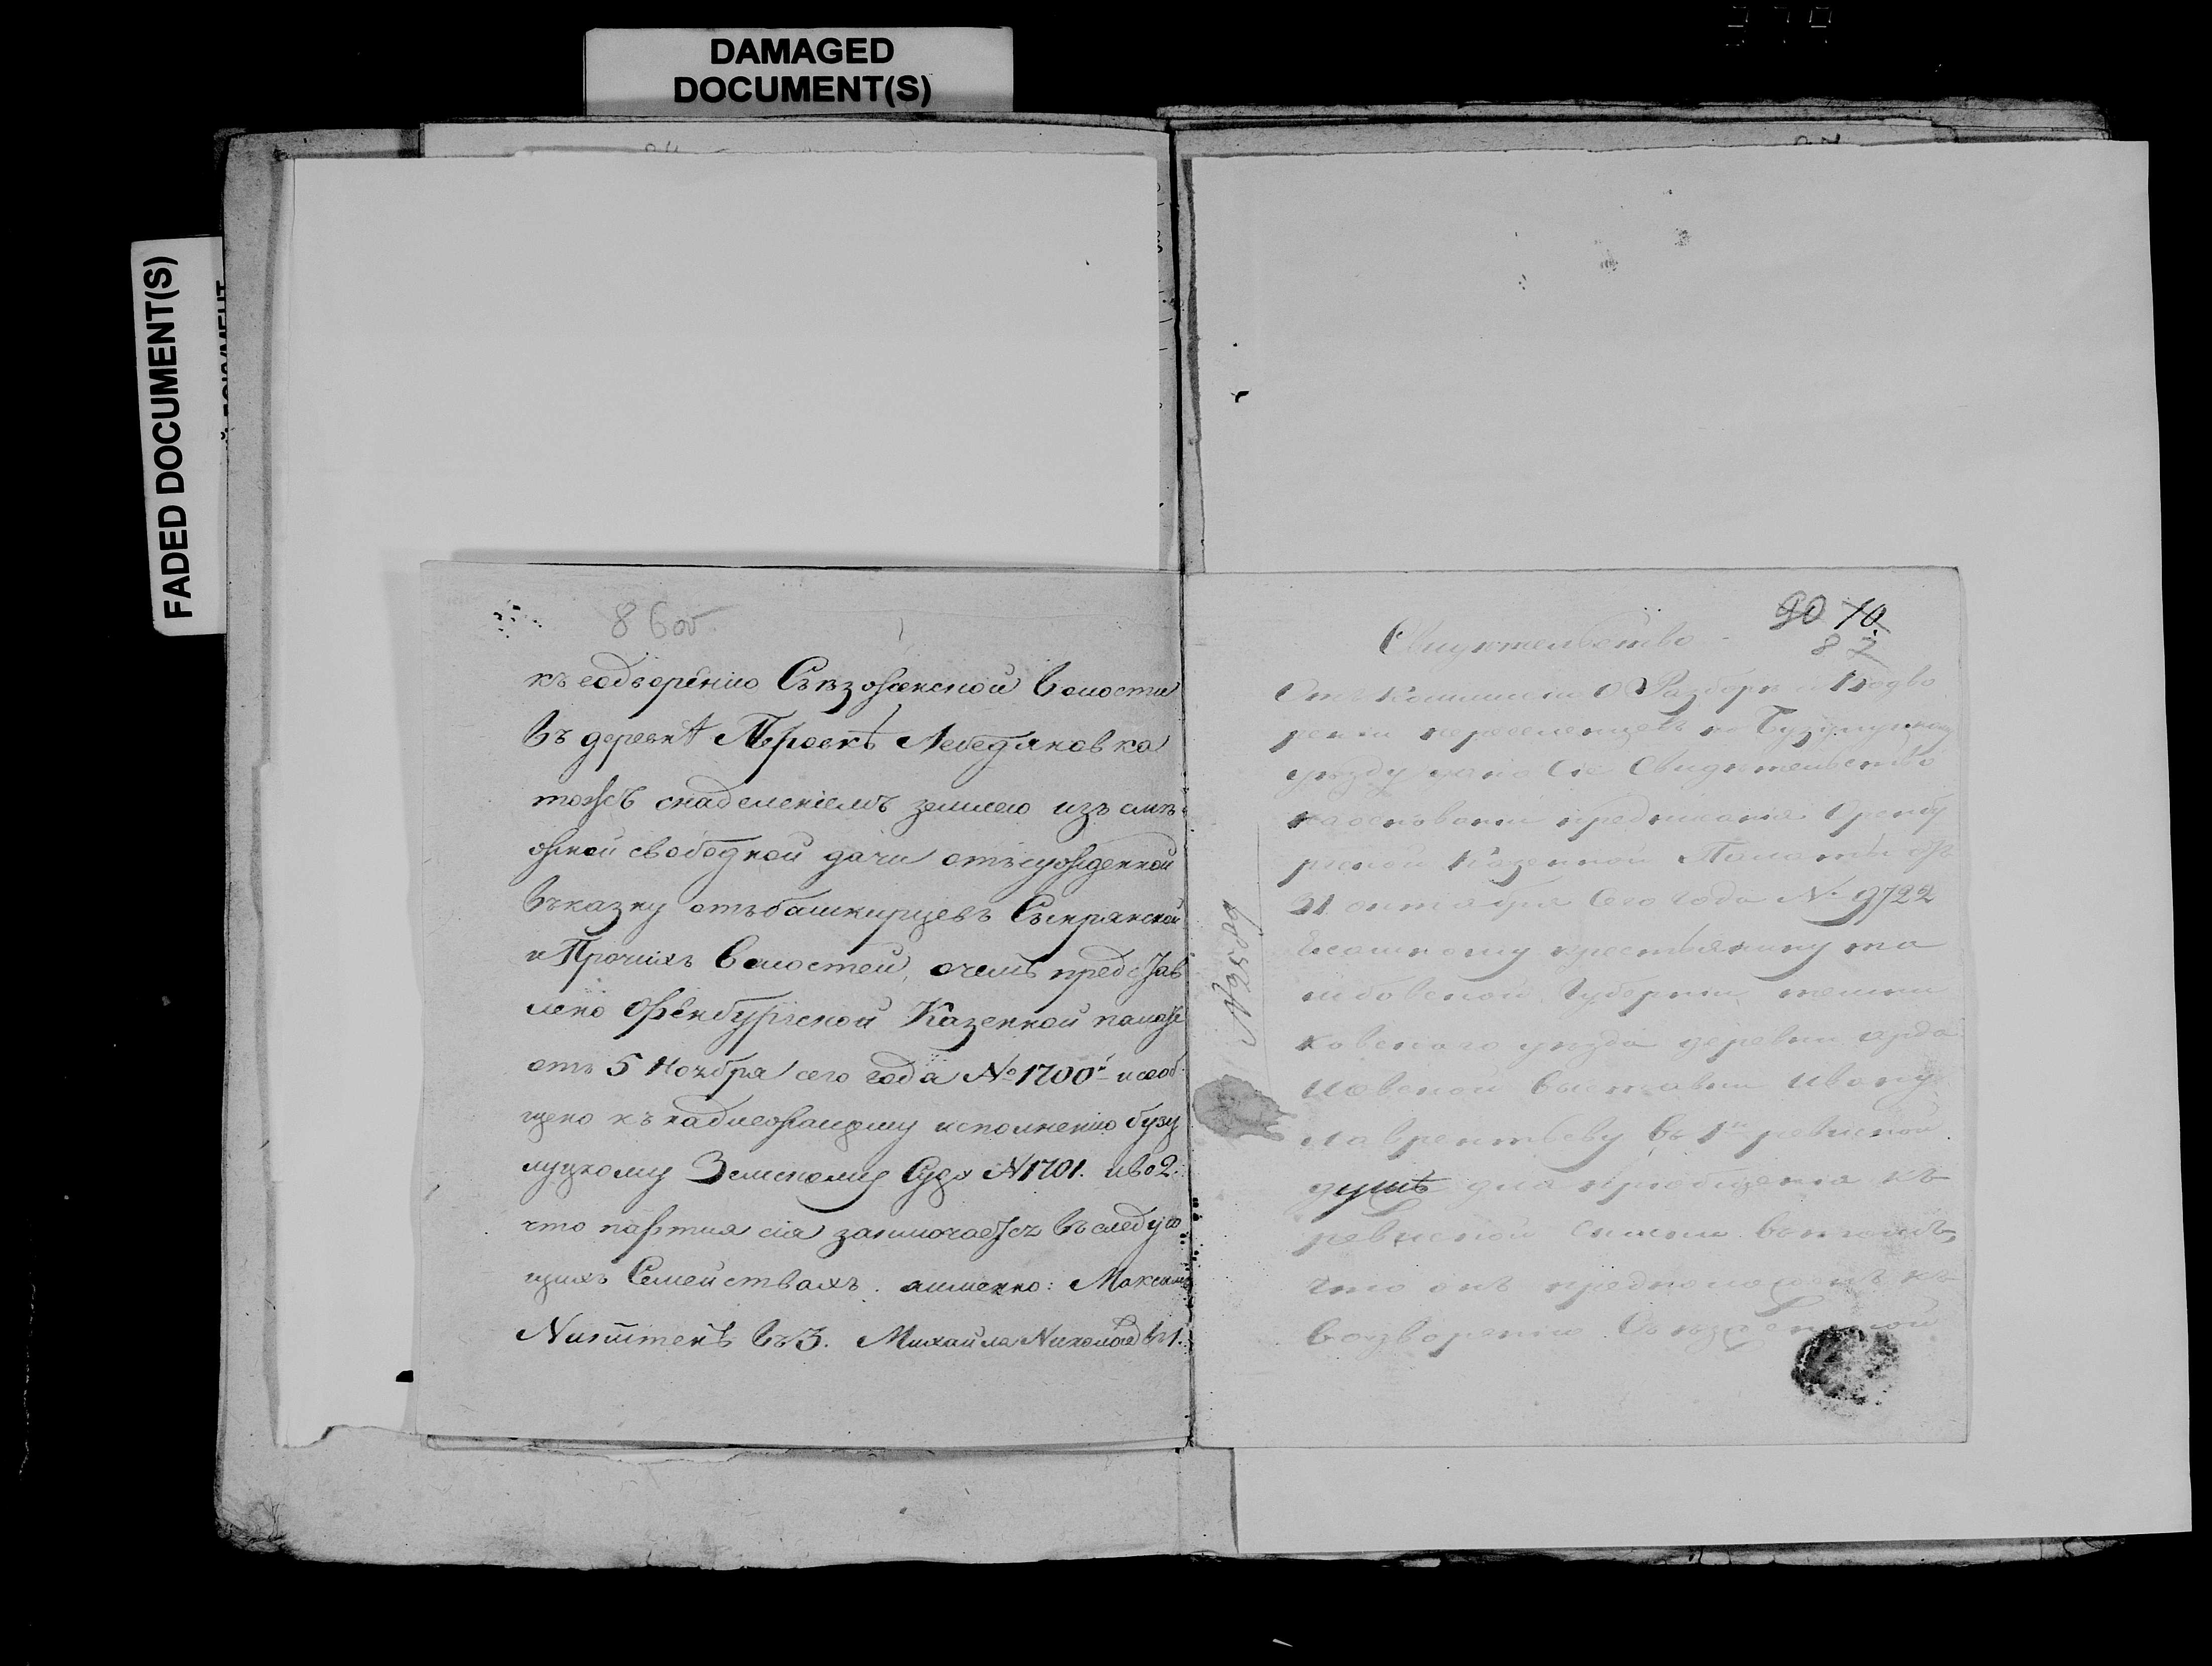 DAMAGED
DOCUMENT(S)
FADED DOCUMENT(S)
86 об
къ водворенію Съезженской волости
въ деревнѣ Проект Лебедяновка
тожъ снаделеніемъ землею изъ смѣ
жной свободной дачи отсужденной
въказну отъбашкирцевъ Сынрянской
и Прочихъ Волостей, очемъ представ
лено Оренбургской Казенной палате
отъ 5 Ноября сего года № 1700й исооб
щено къ надлежащему исполненію бузу
луцкому Земскому Суду № 1701. иво 2.
что партия сія заключается въследую
щихъ Семействахъ. аименно: Максимъ
Никитенъ въ 3. Михайла Николаев въ 1.
90 10
87
Свидетельство
Отъ Комиссіи О Разборе и Водво
реніи переселенцевъ по Бузулуцкому
уезду дано Сіе Свидетельство
наосновании предписания Оренбу
ргской Казенной Палаты отъ
31 октября сего года № 9722
Ясашному крестьянину та
мбовской Губернии темни
ковского уезда деревни
Ивану
лаврентьеву въ 1й ревиской
душе для приобщения къ
ревиской въ томъ,
что онъ предположенъ къ
водворению Съезженской
№ 3589